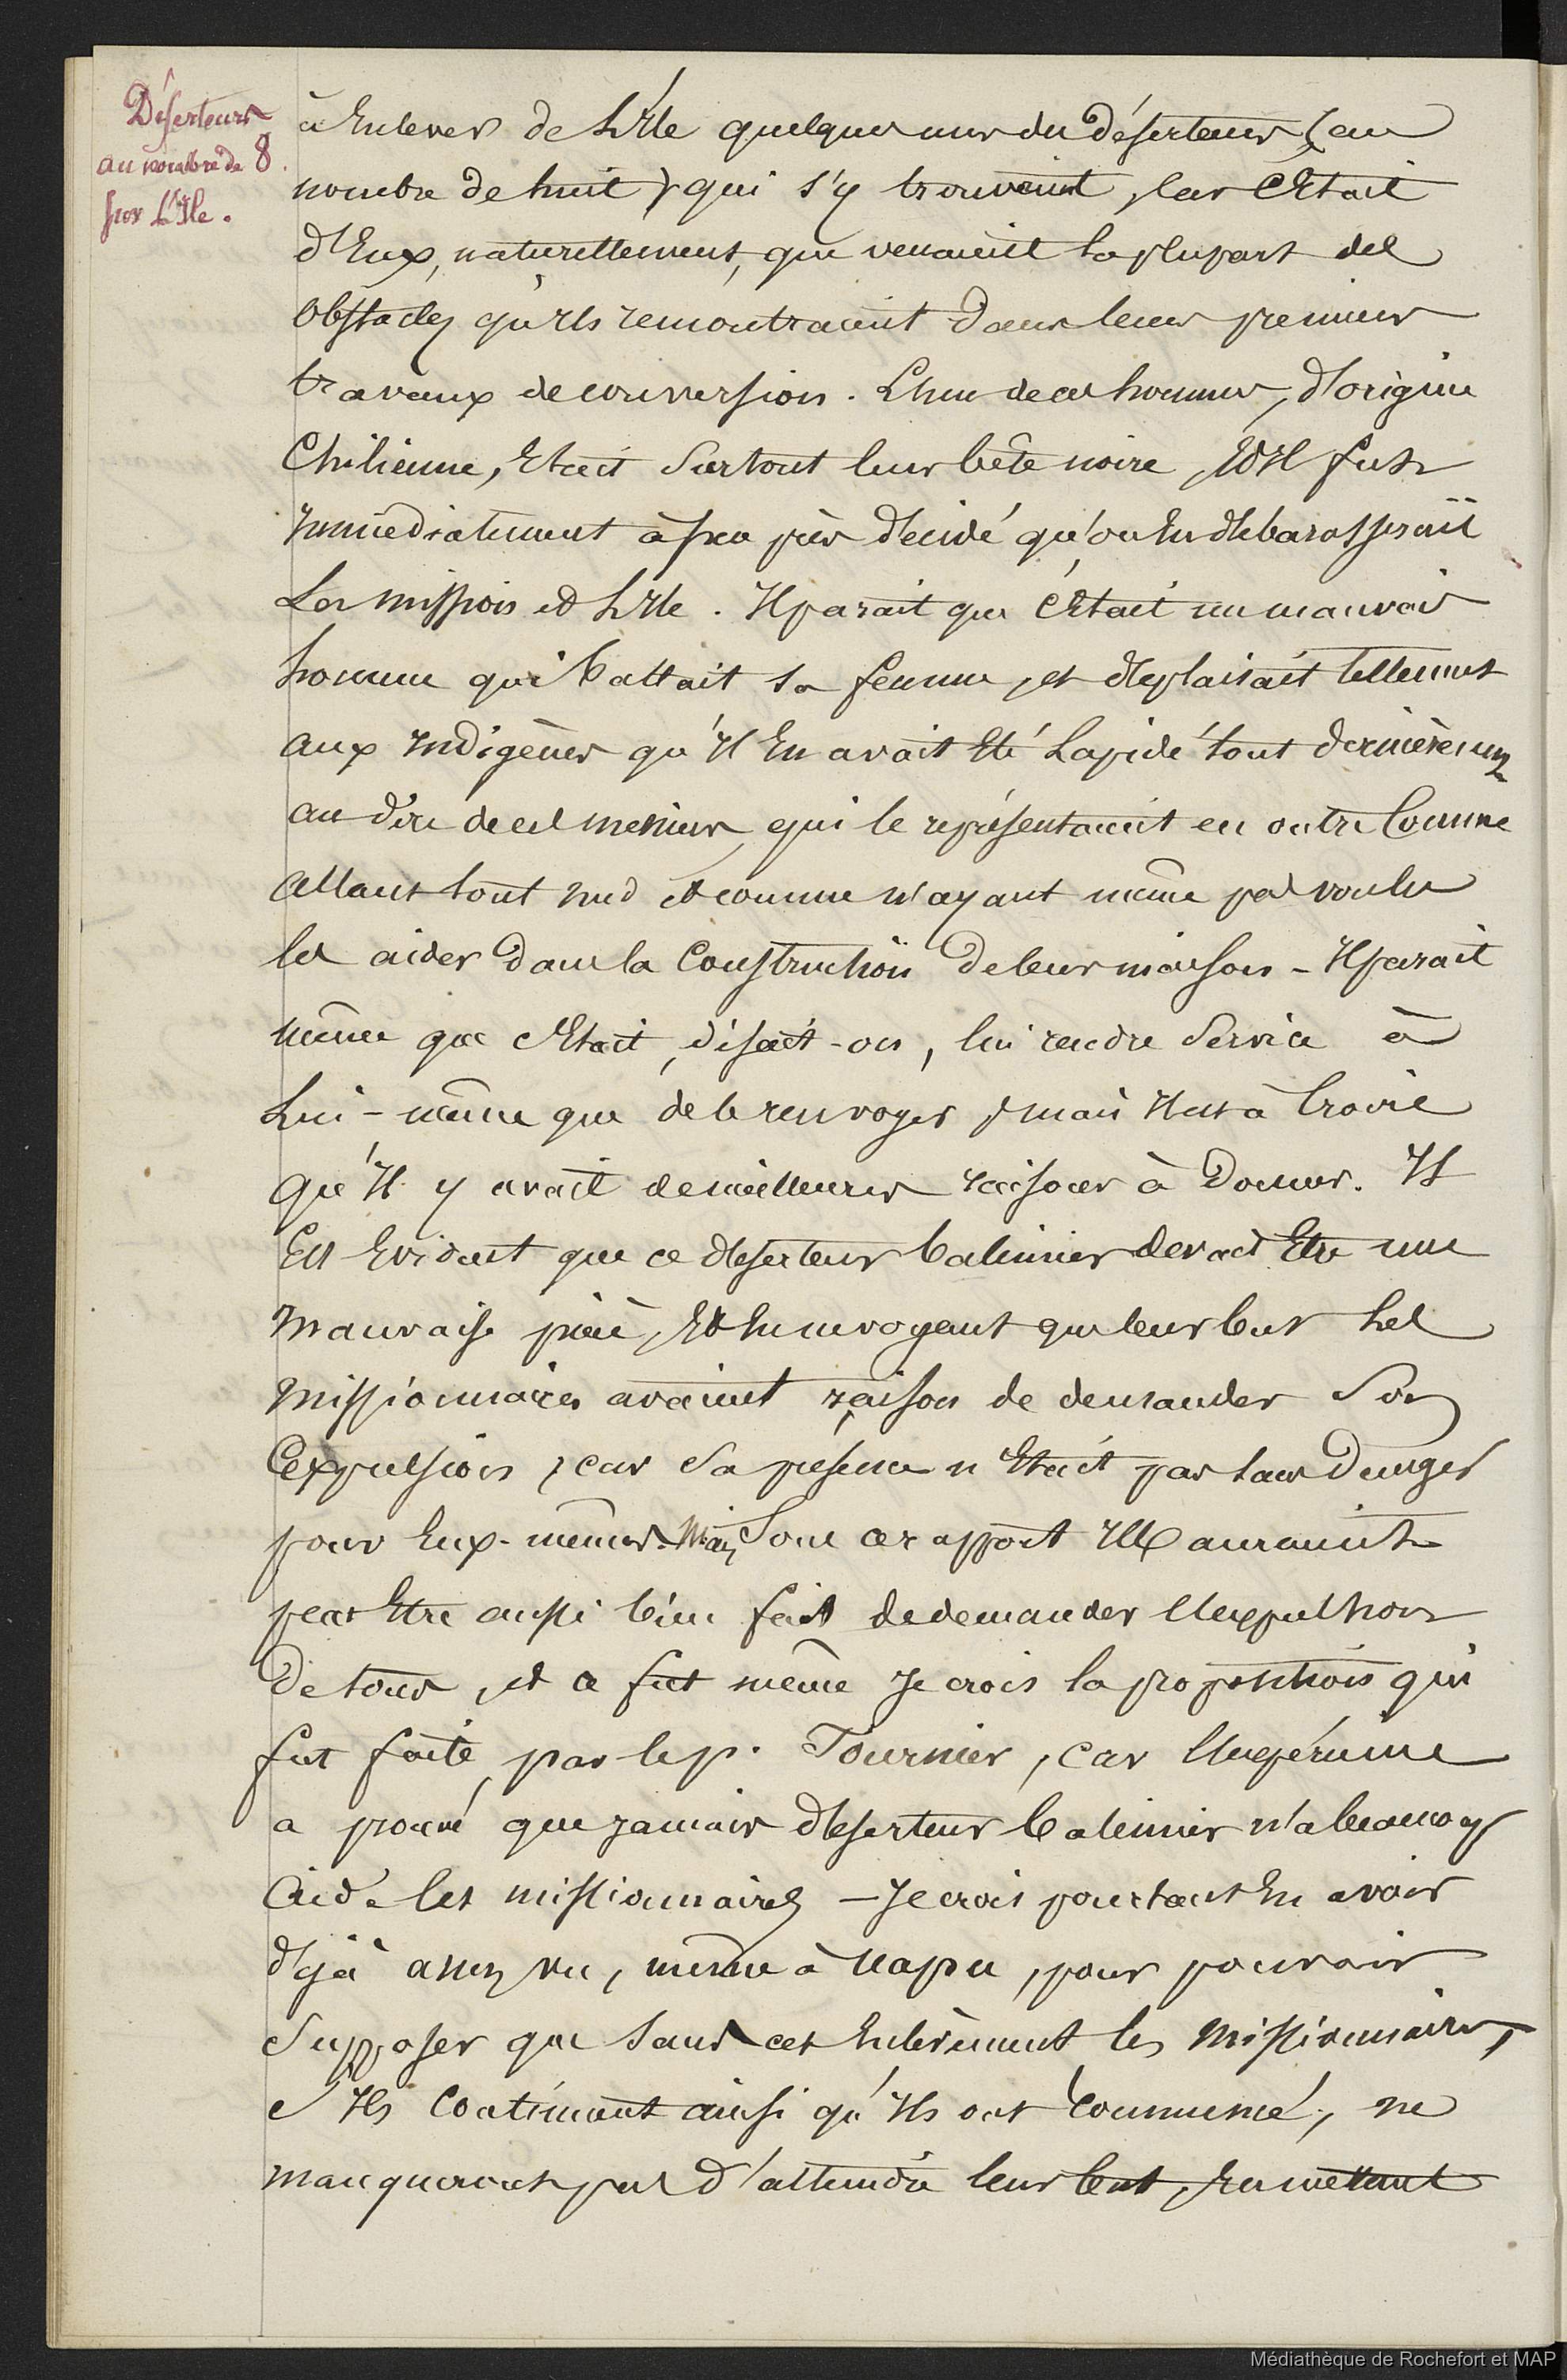 Déserteurs
au nombre de 8.
sur L'Ile.
à Enlever de L'Ile quelques uns des déserteurs (au
nombre de huit) qui s'y trouvaient, car C'Etait
d'Eux, naturellement, que venaient la plupart des
Obstacles qu'Ils remontraient dans leurs premiers
travaux de conversion. L'un de ces hommes, d'origine
Chilienne, Etait Surtout leur bête noire, Et Il fut
Immédiatement à peu près décidé qu'on En débarasserait
La mission et L'Ile. Il parait que C'Etait un mauvais
homme qui battait sa femme, et déplaisait tellement
aux Indigènes qu'Il En avait Eté Lapidé tout dernièrement
au dire de ces messieurs, qui le représentaient en outre Comme
allant tout nud et comme n'ayant même pas voulu
les aider dans la Construction de leur maison - Il parait
même que c'Etait, disait-on, lui rendre Service à
Lui-même que de le renvoyer, mais Il est à Croire
qu'Il y avait de meilleures raisons à Donner. Il
Est Evident que ce déserteur baleinier devait Etre une
Mauvaise pièce, Et En ne voyant que leur but Les
Missionnaires avaient raison de demander Son
Expulsion, car Sa présence n'Etait pas sans Danger
pour Eux-mêmes. Mais Sous ce rapport Ils auraient
peut Etre aussi bien fait de demander l'Expulsion
De tous, et ce fut même Je crois la proposition qui
fut faite par le p. Fournier, car l'Expérience
a prouvé que jamais déserteur baleinier n'a beaucoup
Aidé les missionnaires - Je crois pourtant En avoir
déjà assez vu, même à Uapu, pour pouvoir
Supposer que Sans cet Enlèvement les Missionnaires,
S'Ils Continuent ainsi qu'Ils ont Commencé, ne
manqueront pas d'atteindre leur but, En mettant
Médiathèque de Rochefort et MAP